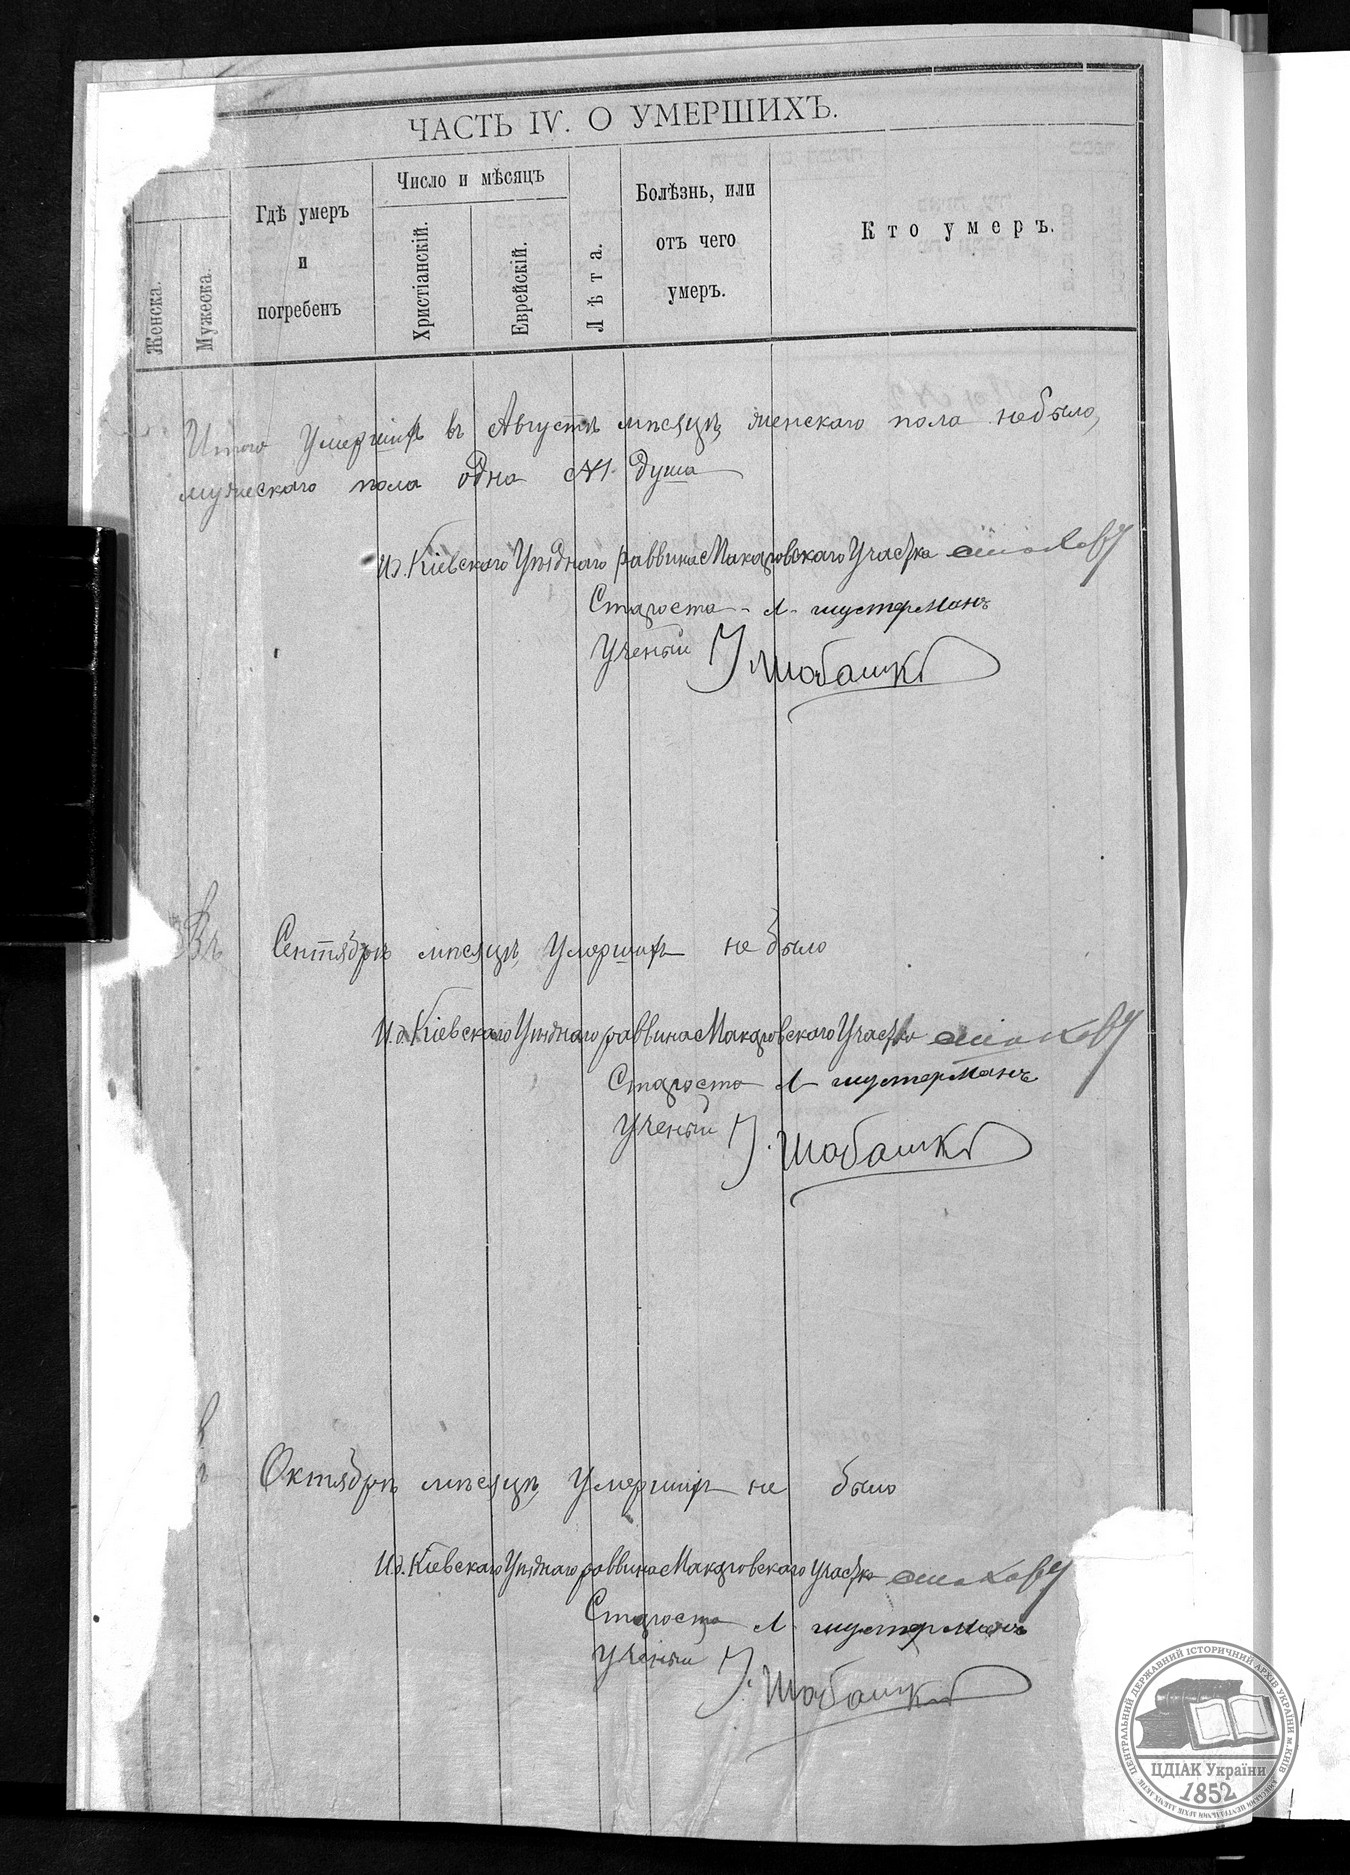 ЧАСТЬ IV. О УМЕРШИХЪ.
Женска.
Мужеска
Гдѣ умеръ
и
погребенъ
Число и мѣсяцъ
Христіанскій.
Еврейскій.
Лѣта.
Болѣзнь, или
отъ чего
умеръ.
Кто умеръ.
Итого Умершихъ въ Августѣ мѣсяцѣ женскаго пола небыло,
мужескаго пола одна №1 душа
И.д. Кіевскаго Уѣзднаго раввина Макаровскаго Участка
Староста Л. Шустерманъ
Ученый І. Шабашк
Въ Сентябрѣ мѣсяцѣ Умершихъ не было
И.д. Кіевскаго Уѣзднаго раввина Макаровскаго Участка
Староста Л. Шустерманъ
Ученый І. Шабашк
Октябрѣ мѣсяцѣ Умершихъ не было
И.д. Кіевскаго Уѣзднаго раввина Макаровскаго Участка
Староста Л. Шустерманъ
Ученый І. Шабашк
ЦЕНТРАЛЬНИЙ ДЕРЖАВНИЙ ІСТОРИЧНИЙ АРХІВ УКРАЇНИ м. КИЇВ
ЦДІАК України
1852